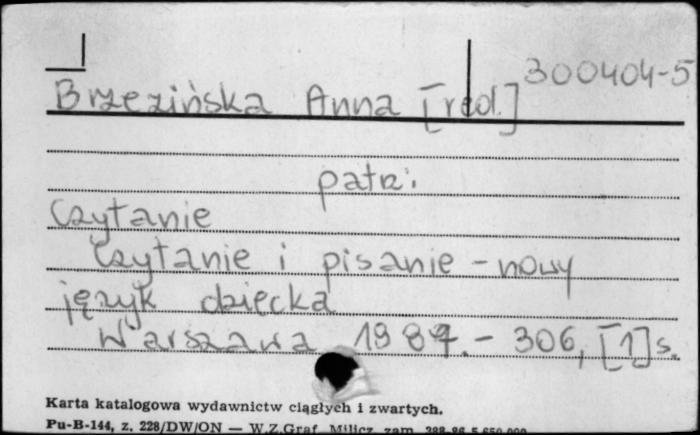 300404-5
Brzezińska Anna [red.]
patrz:
Czytanie
Czytanie i pisanie - nowy
język dziecka
Warszawa 1987. - 306, [1] s.
Karta katalogowa wydawnictw ciągłych i zwartych.
Pu-B-144, z. 228/DW/ON — W.Z.Graf. Milicz zam. 388-86 5.650.000